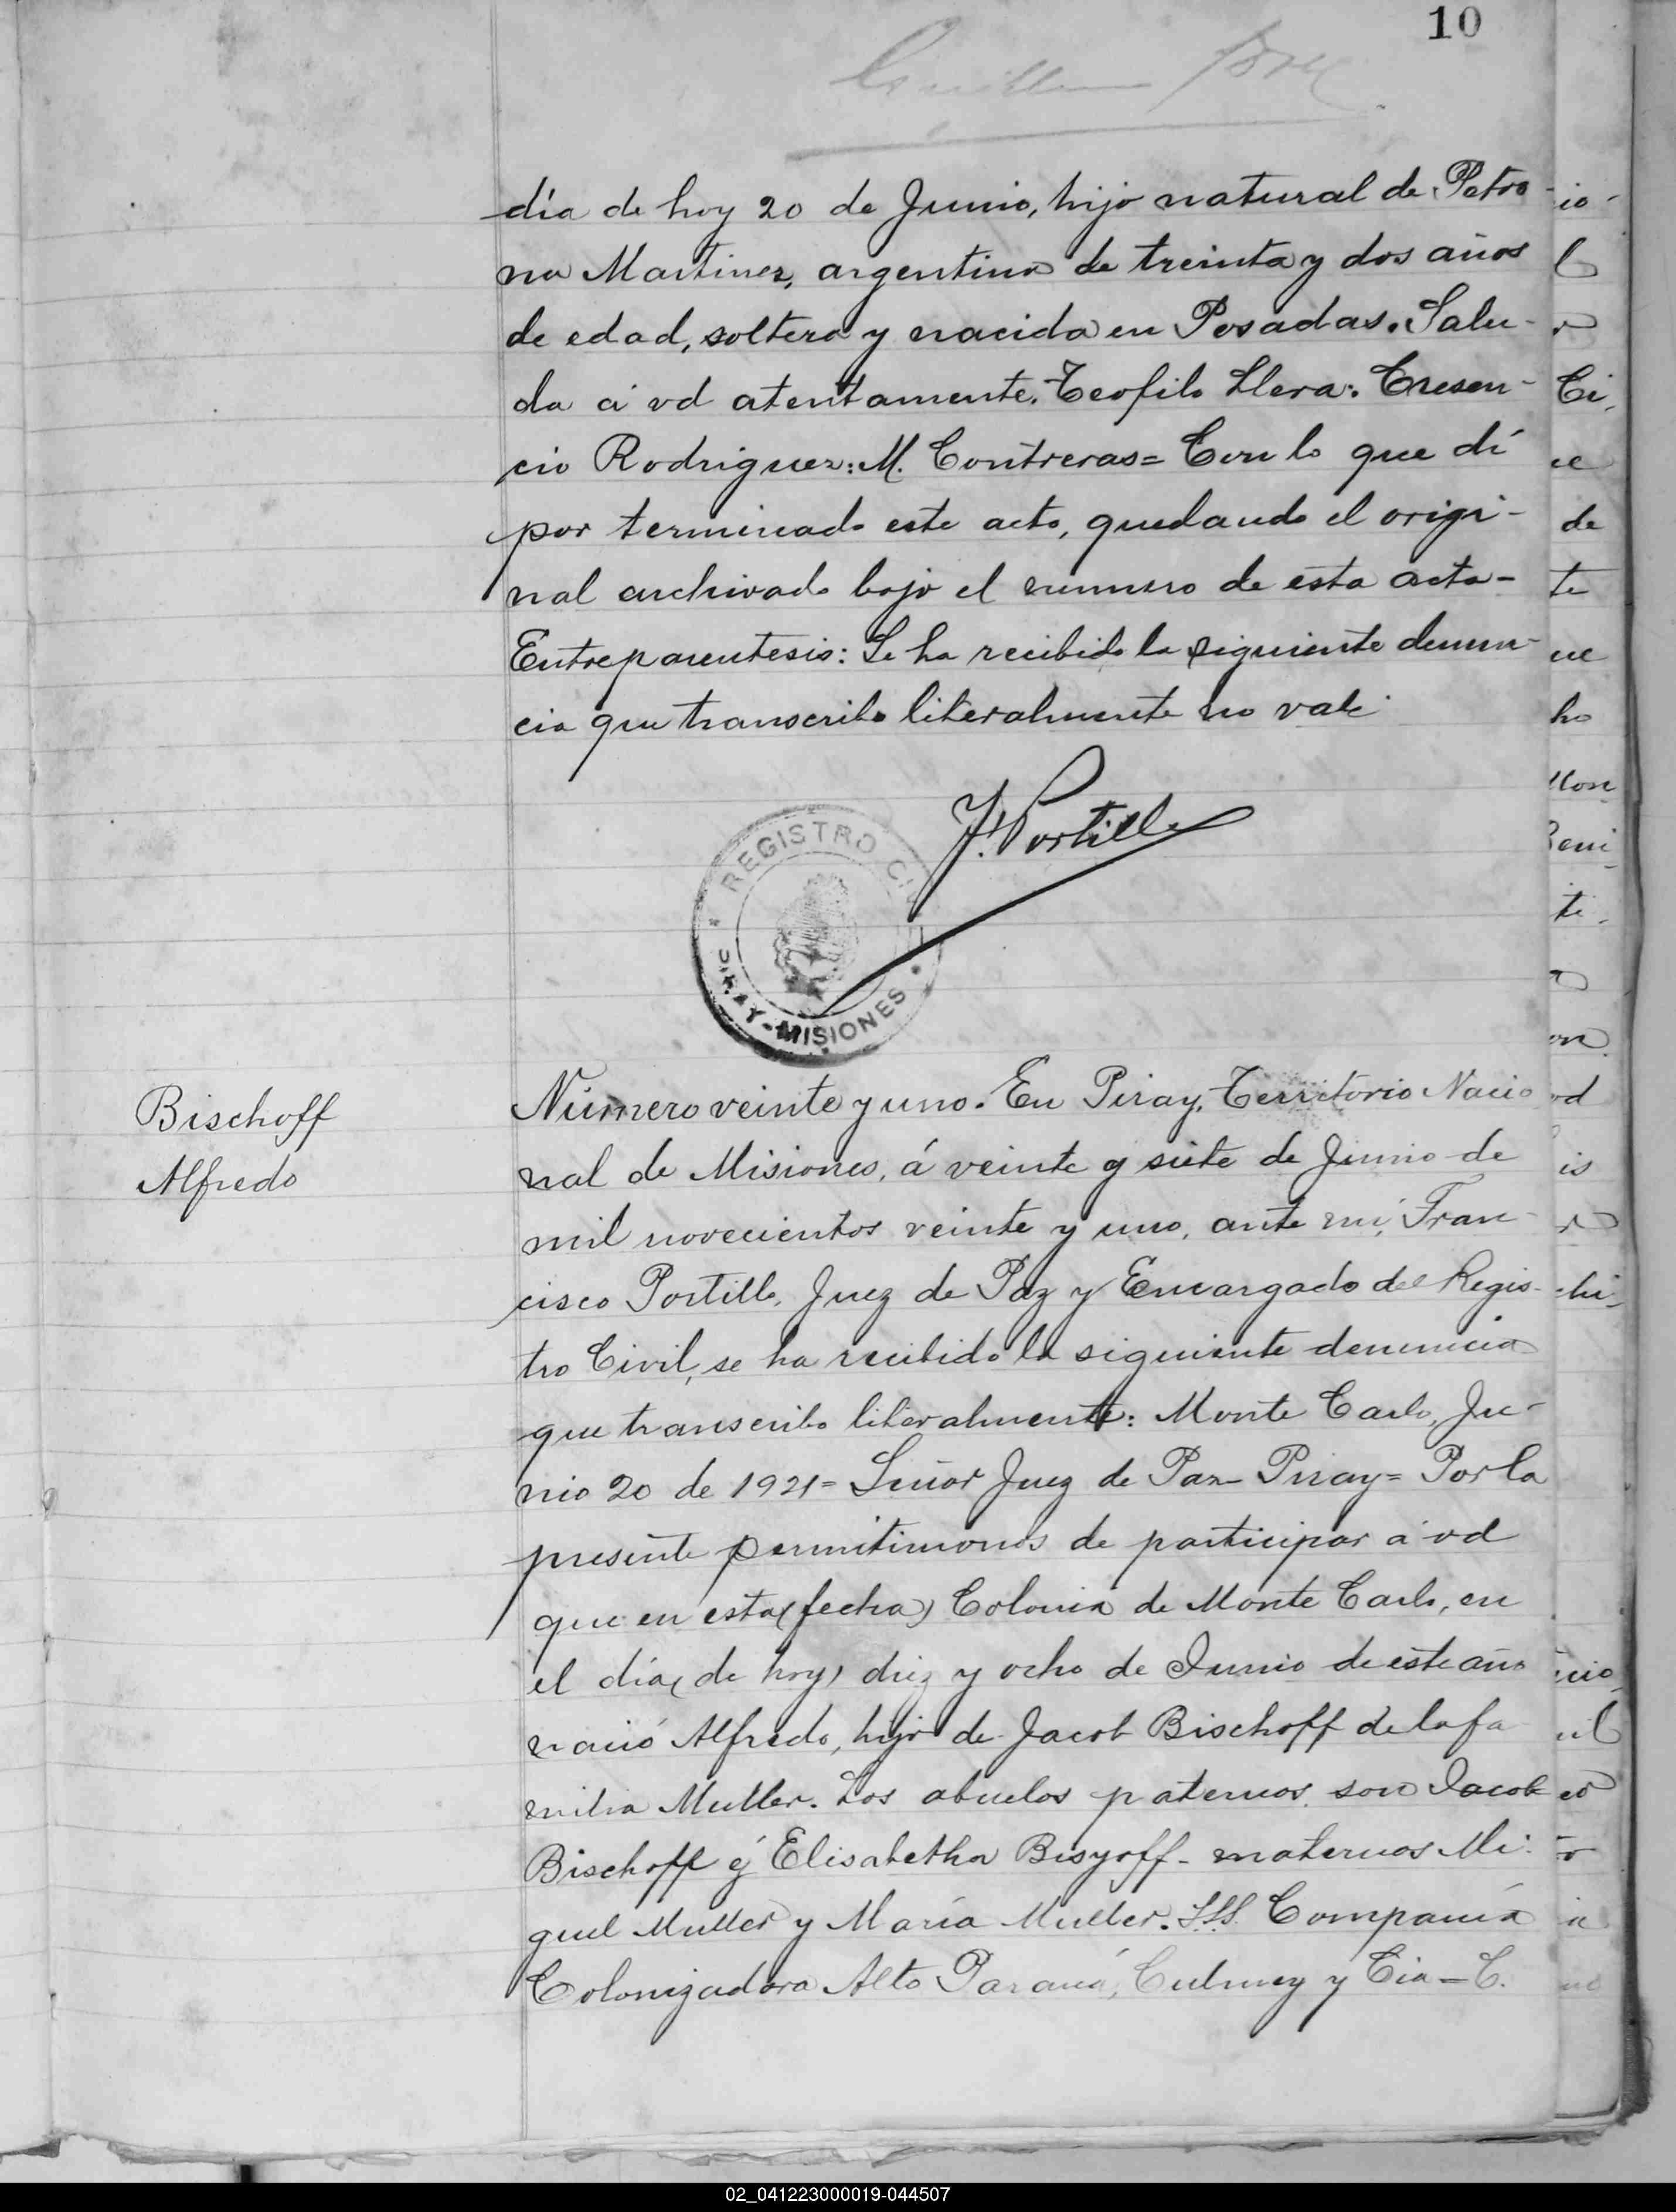 10
día de hoy 20 de Junio, hijo natural de Petro-
na Martinez, argentina de treinta y dos años
de edad, soltera y nacida en Posadas. Salu-
da á vd atentamente. Teofilo Llera: Cresen-
cio Rodriguez: M. Contreras= Con lo que dí
por terminado este acto, quedando el origi-
nal archivado bajo el numero de esta acta-
Entreparentesis: Se ha recibido la siguiente denun-
cia que transcribo literalmente no vale
F. Portillo
REGISTRO CIVIL
PIRAY-MISIONES
Bischoff
Alfredo
Número veinte y uno. En Piray, Territorio Nacio
nal de Misiones, á veinte y siete de Junio de
mil novecientos veinte y uno, ante mí, Fran-
cisco Portillo, Juez de Paz y Encargado del Regis-
tro Civil, se ha recibido la siguiente denuncia
que transcribo literalmente: Monte Carlo, Ju-
nio 20 de 1921= Señor Juez de Paz- Piray= Por la
presente permitimonos de participar á vd
que en esta (fecha) Colonia de Monte Carlo, en
el día (de hoy) diez y ocho de Junio de este año
nació Alfredo, hijo de Jacob Bischoff de la fa
milia Muller. Los abuelos paternos son Jacob
Bischoff é Elisabetha Bisyoff- maternos Mi-
guel Muller y María Muller. S.S.S. Compañía
Colonizadora Alto Paraná, Culmey y Cia=C.
02_041223000019-044507